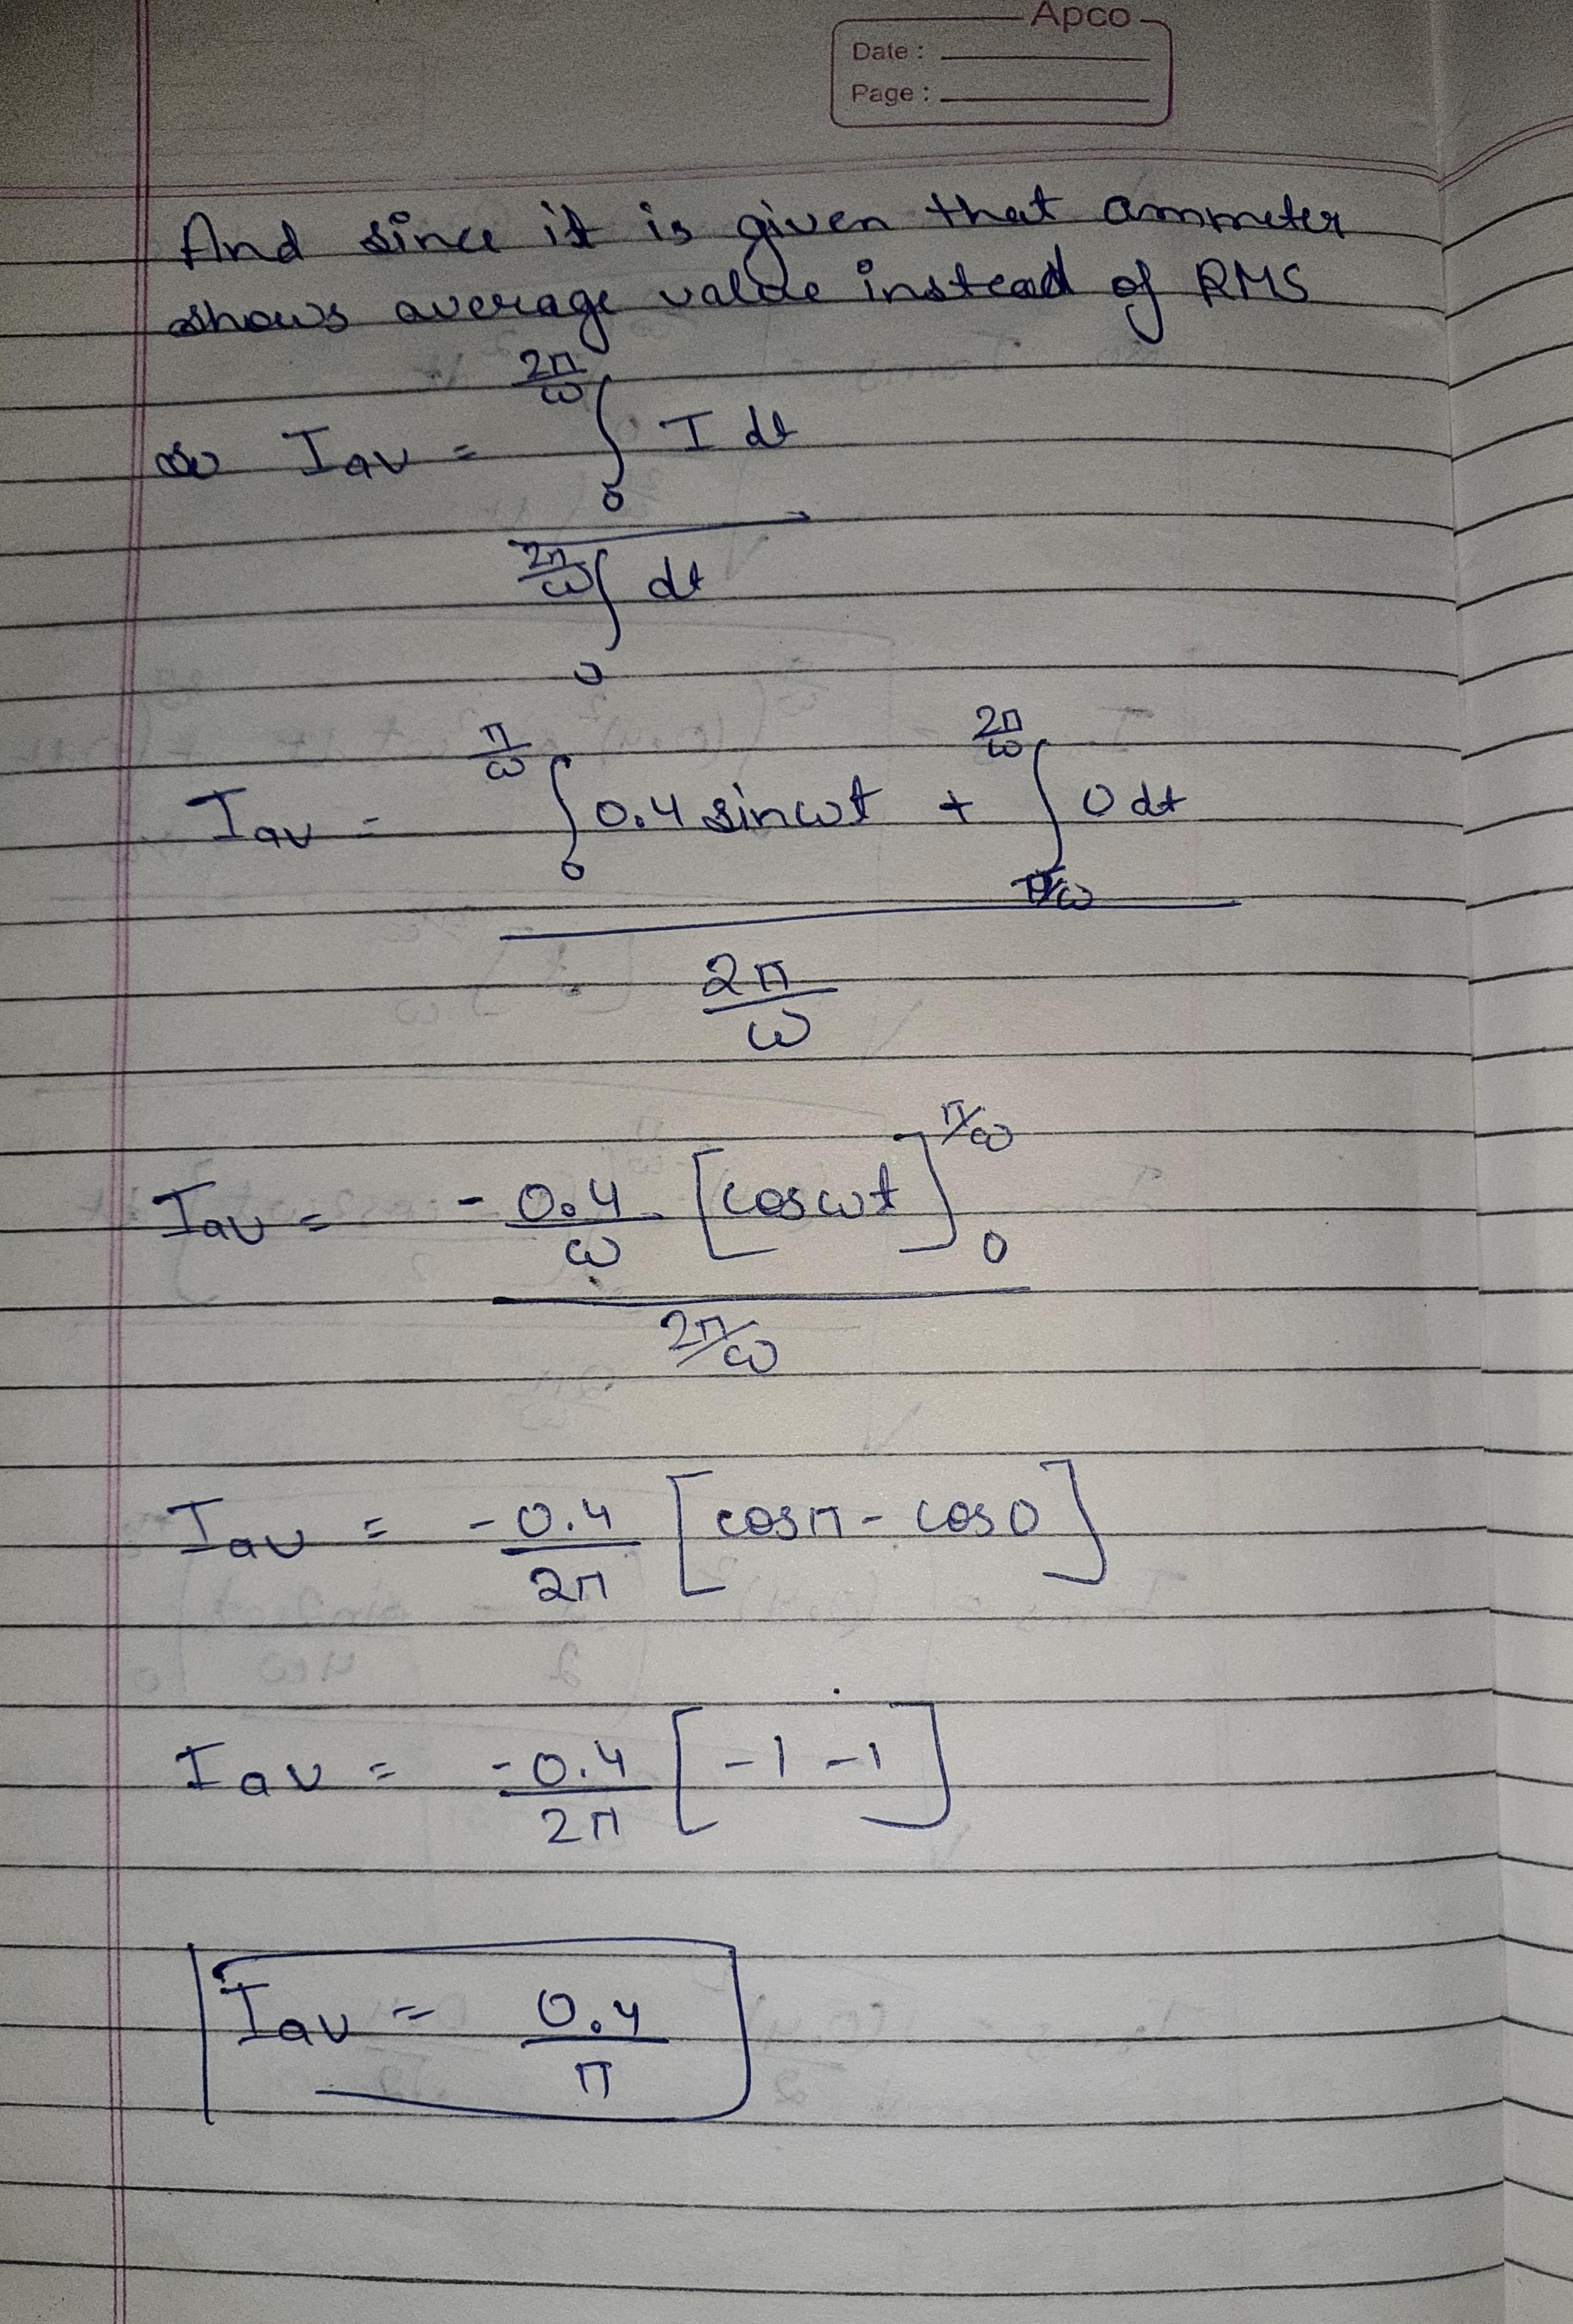 Apco
Date :
Page :
And since it is given that ammeter
shows average value instead of RMS
so Iav = ∫₀^(2π/ω) I dt
∫₀^(2π/ω) dt
Iav = ∫₀^(π/ω) 0.4 sinωt + ∫_(π/ω)^(2π/ω) 0 dt
2π/ω
Iav = -0.4/ω [cosωt]₀^(π/ω)
2π/ω
Iav = -0.4/2π [cosπ - cos0]
Iav = -0.4/2π [-1 -1]
Iav = 0.4/π